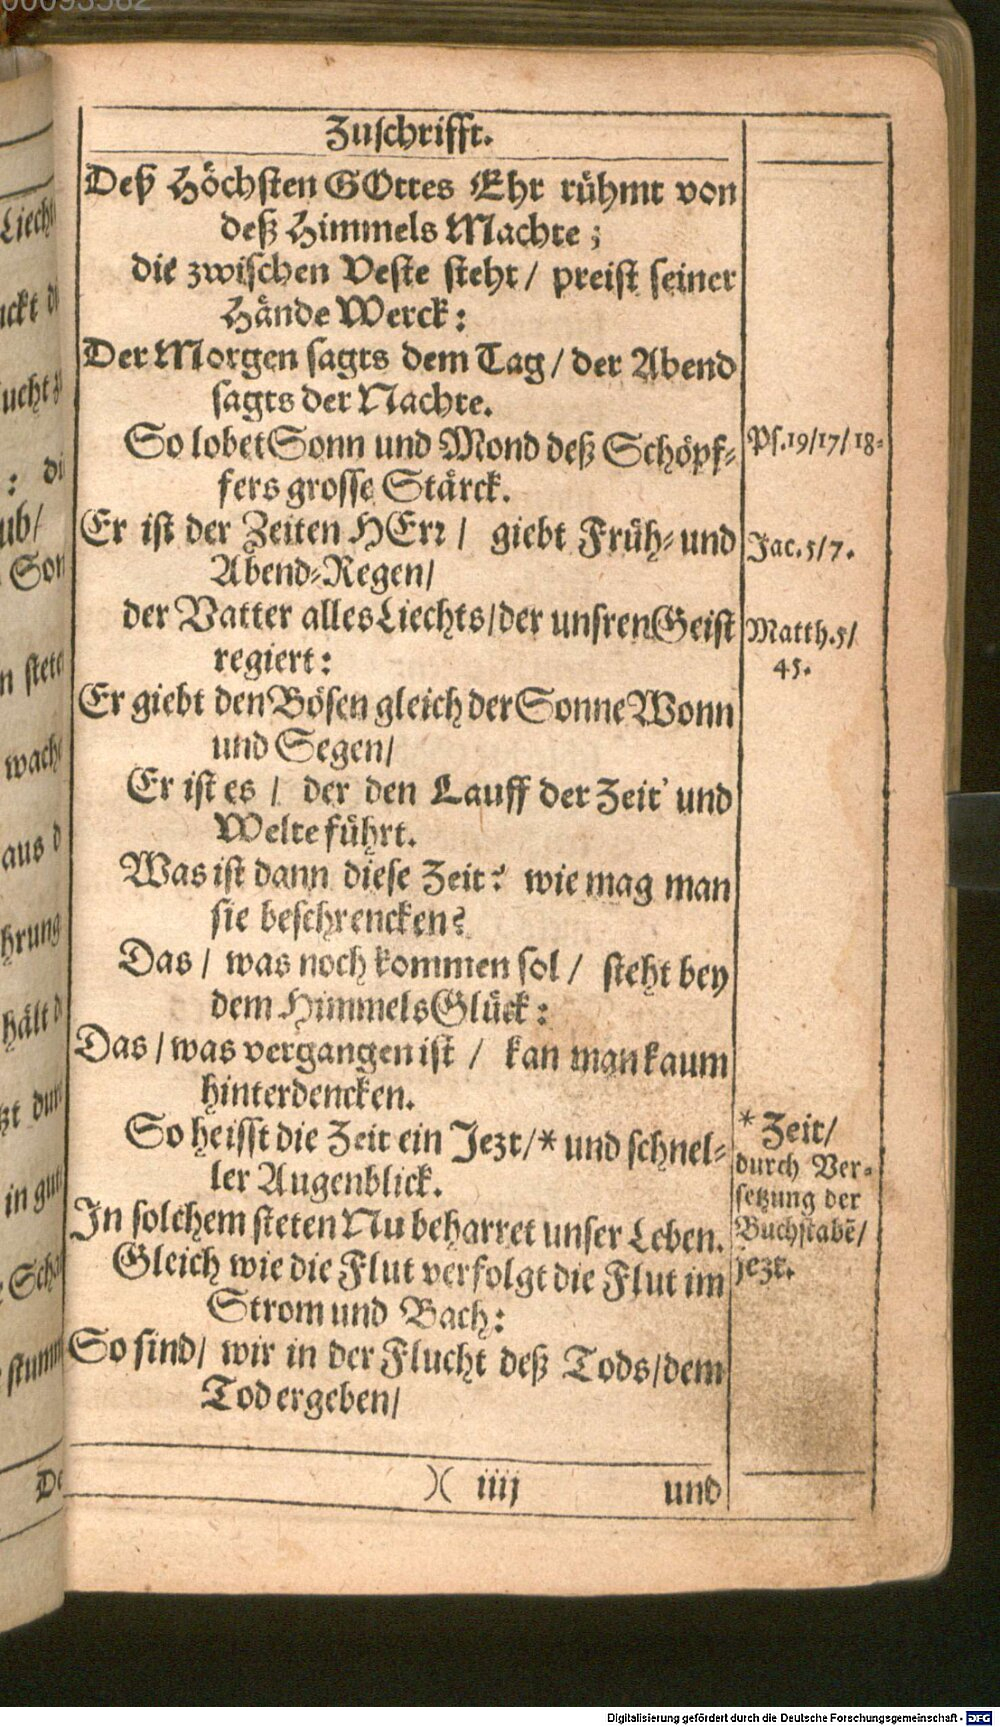 00093582
Zuschrifft.
Deß Höchsten GOttes Ehr rühmt von
deß Himmels Machte;
die zwischen Veste steht/ preist seiner
Hände Werck:
Der Morgen sagts dem Tag/ der Abend
sagts der Nachte.
So lobet Sonn und Mond deß Schöpf-
fers grosse Stärck.
Ps. 19/17/18.
Er ist der Zeiten HErr/ giebt Früh- und
Abend-Regen/
Jac. 5/7.
der Vatter alles Liechts/der unsren Geist
regiert:
Matth. 5/
45.
Er giebt den Bösen gleich der Sonne Wonn
und Segen/
Er ist es / der den Lauff der Zeit und
Welte führt.
Was ist dann diese Zeit? wie mag man
sie beschrencken?
Das / was noch kommen sol / steht bey
dem Himmels Glück:
Das / was vergangen ist / kan man kaum
hinterdencken.
So heisst die Zeit ein Jezt/* und schnel-
ler Augenblick.
* Zeit/
durch Ver-
setzung der
Buchstabē/
jezt.
In solchem steten Nu beharret unser Leben.
Gleich wie die Flut verfolgt die Flut im
Strom und Bach:
So sind/ wir in der Flucht deß Tods/dem
Tod ergeben/
)( iiij
und
Digitalisierung gefördert durch die Deutsche Forschungsgemeinschaft - DFG